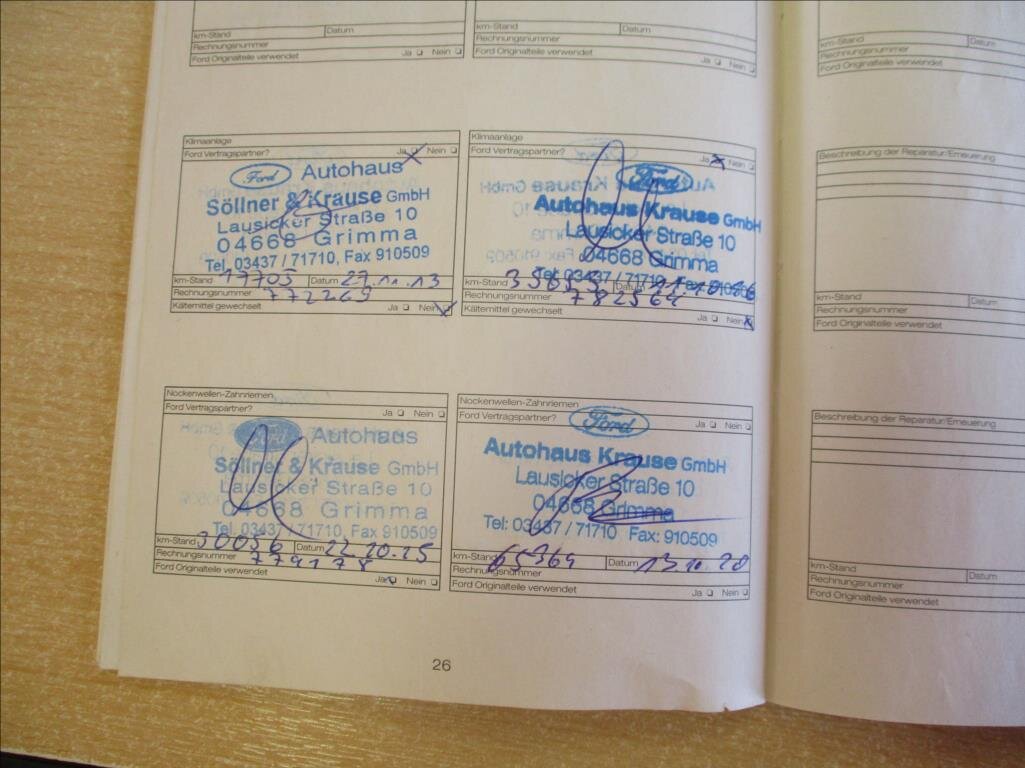 km-Stand Datum
Rechnungsnummer
Ford Originalteile verwendet Ja Nein
km-Stand Datum
Rechnungsnummer
Ford Originalteile verwendet Ja Nein
Klimaanlage
Ford Vertragspartner? Ja Nein
Ford Autohaus
Söllner & Krause GmbH
Lausicker Straße 10
04668 Grimma
Tel. 03437 / 71710, Fax 910509
km-Stand 17705 Datum 27.11.13
Rechnungsnummer 772269
Kältemittel gewechselt Ja Nein
Klimaanlage
Ford Vertragspartner? Ja Nein
Ford
Autohaus Krause GmbH
Lausicker Straße 10
04668 Grimma
Tel. 03437 / 71710 Fax 910509
km-Stand Datum
Rechnungsnummer 782564
Kältemittel gewechselt Ja Nein
Nockenwellen-Zahnriemen
Ford Vertragspartner? Ja Nein
Ford Autohaus
Söllner & Krause GmbH
Lausicker Straße 10
04668 Grimma
Tel. 03437 / 71710, Fax 910509
km-Stand 30056 Datum 22.10.15
Rechnungsnummer 779178
Ford Originalteile verwendet Ja Nein
Nockenwellen-Zahnriemen
Ford Vertragspartner? Ja Nein
Ford
Autohaus Krause GmbH
Lausicker Straße 10
04668 Grimma
Tel: 03437 / 71710 Fax: 910509
km-Stand 65369 Datum 13.10.20
Rechnungsnummer
Ford Originalteile verwendet Ja Nein
26
km-Stand Datum
Rechnungsnummer
Ford Originalteile verwendet
Beschreibung der Reparatur/Erneuerung
km-Stand Datum
Rechnungsnummer
Ford Originalteile verwendet
Beschreibung der Reparatur/Erneuerung
km-Stand Datum
Rechnungsnummer
Ford Originalteile verwendet